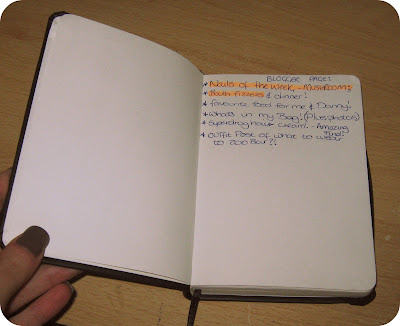 BLOGGER PAGE!
* Nails of the week, - Mushroom!
* Bath Fizzers & dinner!
* favourite food for me & Danny!
* Whats in my Bag! (Plus photos)
* Superdrug hand cream! - Amazing find!
* OUTFIT Post of what to wear
to zoo Bar!!